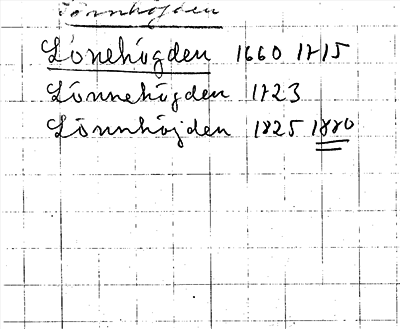 Lönnhöjden
Lönehögden 1660 1715
Lönnehögden 1723
Lönnhöjden 1825 1880